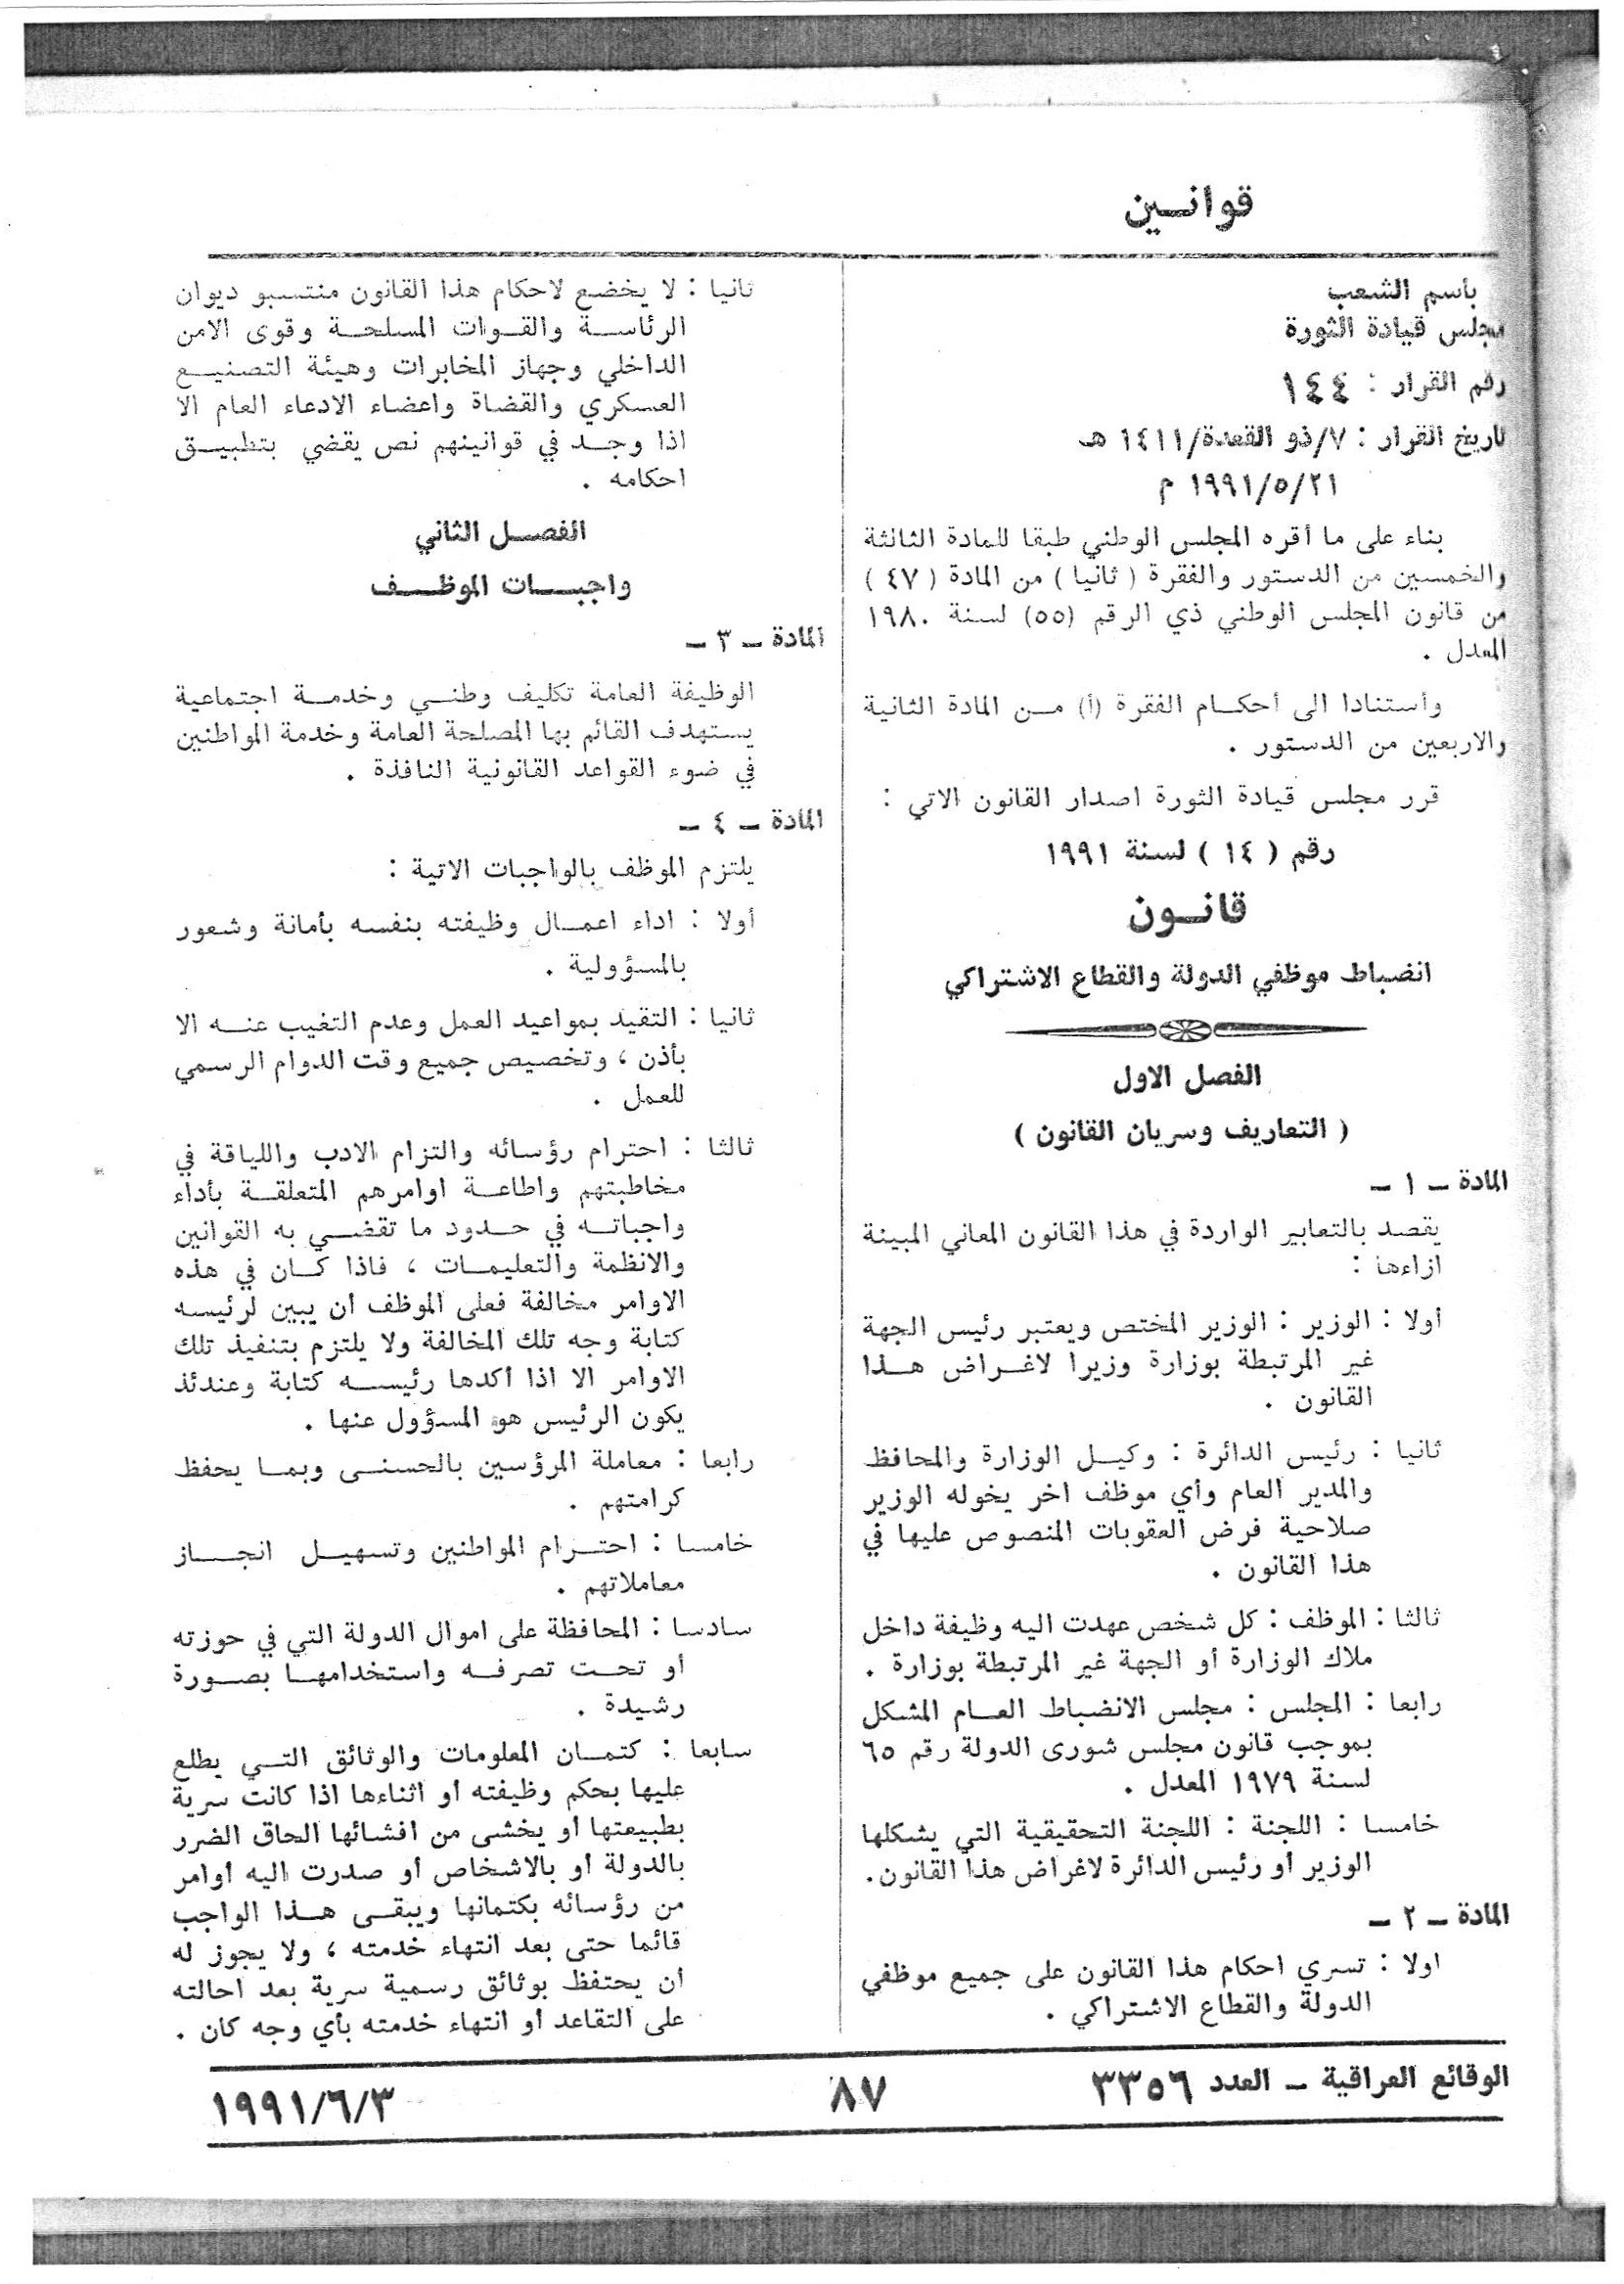 قوانين
بأسم الشعب
مجلس قيادة الثورة
رقم القرار : ١٤٤
تاريخ القرار : ٧/ذو القعدة/١٤١١ هـ
٢١/٥/١٩٩١ م
بناء على ما أقره المجلس الوطني طبقا للمادة الثالثة
والخمسين من الدستور والفقرة ( ثانيا ) من المادة ( ٤٧ )
من قانون المجلس الوطني ذي الرقم (٥٥) لسنة ١٩٨٠
المعدل .
وأستنادا الى أحكام الفقرة (أ) من المادة الثانية
والاربعين من الدستور .
قرر مجلس قيادة الثورة اصدار القانون الاتي :
رقم ( ١٤ ) لسنة ١٩٩١
قانون
انضباط موظفي الدولة والقطاع الاشتراكي
الفصل الاول
( التعاريف وسريان القانون )
المادة - ١ -
يقصد بالتعابير الواردة في هذا القانون المعاني المبينة
ازاءها :
أولا : الوزير : الوزير المختص ويعتبر رئيس الجهة
غير المرتبطة بوزارة وزيرا لاغراض هذا
القانون .
ثانيا : رئيس الدائرة : وكيل الوزارة والمحافظ
والمدير العام وأي موظف اخر يخوله الوزير
صلاحية فرض العقوبات المنصوص عليها في
هذا القانون .
ثالثا : الموظف : كل شخص عهدت اليه وظيفة داخل
ملاك الوزارة أو الجهة غير المرتبطة بوزارة .
رابعا : المجلس : مجلس الانضباط العام المشكل
بموجب قانون مجلس شورى الدولة رقم ٦٥
لسنة ١٩٧٩ المعدل .
خامسا : اللجنة : اللجنة التحقيقية التي يشكلها
الوزير أو رئيس الدائرة لاغراض هذا القانون.
المادة - ٢ -
اولا : تسري احكام هذا القانون على جميع موظفي
الدولة والقطاع الاشتراكي .
ثانيا : لا يخضع لاحكام هذا القانون منتسبو ديوان
الرئاسة والقوات المسلحة وقوى الامن
الداخلي وجهاز المخابرات وهيئة التصنيع
العسكري والقضاة واعضاء الادعاء العام الا
اذا وجد في قوانينهم نص يقضي بتطبيق
احكامه .
الفصل الثاني
واجبات الموظف
المادة - ٣ -
الوظيفة العامة تكليف وطني وخدمة اجتماعية
يستهدف القائم بها المصلحة العامة وخدمة المواطنين
في ضوء القواعد القانونية النافذة .
المادة - ٤ -
يلتزم الموظف بالواجبات الاتية :
أولا : اداء اعمال وظيفته بنفسه بأمانة وشعور
بالمسؤولية .
ثانيا : التقيد بمواعيد العمل وعدم التغيب عنه الا
بأذن ، وتخصيص جميع وقت الدوام الرسمي
للعمل .
ثالثا : احترام رؤسائه والتزام الادب واللياقة في
مخاطبتهم واطاعة اوامرهم المتعلقة بأداء
واجباته في حدود ما تقضي به القوانين
والانظمة والتعليمات ، فاذا كان في هذه
الاوامر مخالفة فعلى الموظف ان يبين لرئيسه
كتابة وجه تلك المخالفة ولا يلتزم بتنفيذ تلك
الاوامر الا اذا أكدها رئيسه كتابة وعندئذ
يكون الرئيس هو المسؤول عنها .
رابعا : معاملة المرؤسين بالحسنى وبما يحفظ
كرامتهم .
خامسا : احترام المواطنين وتسهيل انجاز
معاملاتهم .
سادسا : المحافظة على اموال الدولة التي في حوزته
أو تحت تصرفه واستخدامها بصورة
رشيدة .
سابعا : كتمان المعلومات والوثائق التي يطلع
عليها بحكم وظيفته أو اثناءها اذا كانت سرية
بطبيعتها أو يخشى من افشائها الحاق الضرر
بالدولة أو بالاشخاص أو صدرت اليه أوامر
من رؤسائه بكتمانها ويبقى هذا الواجب
قائما حتى بعد انتهاء خدمته ، ولا يجوز له
أن يحتفظ بوثائق رسمية سرية بعد احالته
على التقاعد أو انتهاء خدمته بأي وجه كان .
الوقائع العراقية - العدد ٣٣٥٦
٨٧
١٩٩١/٦/٣